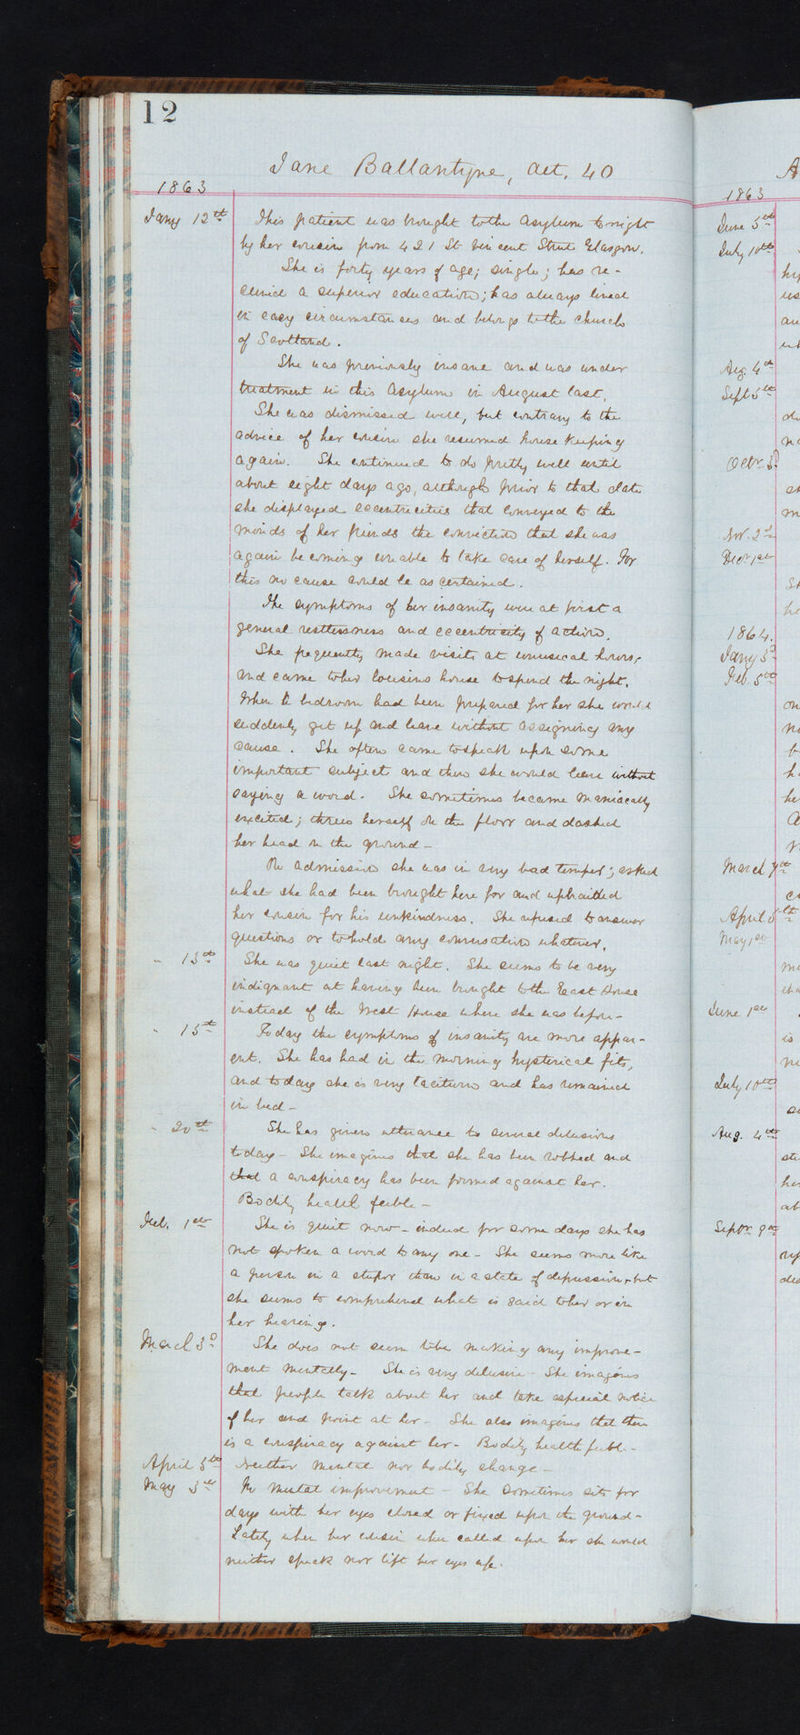 12
Jane Ballantyne, aet. 40
1863
Jany 12th This patient was brought to the Asylum to-night
by her cousin from 421 St Vincent Street Glasgow.
She is forty years of age; single; has re-
ceived a superior education; has always lived
in easy circumstances and belongs to the Church
of Scotland.
She was previously insane and was under
treatment in this Asylum in August last.
She was dismissed well, but contrary to the
advice of her cousin she resumed house keeping
again. She continued to do pretty well until
about eight days ago, although prior to that date
she displayed eccentricities that conveyed to the
minds of her friends the conviction that she was
again becoming unable to take care of herself. For
this no cause could be ascertained.
The symptoms of her insanity were at first a
general restlessness and eccentricity of action.
She frequently made visits at unusual hours,
and came to her cousins house to spend the night.
When a bedroom had been prepared for her she would
suddenly get up and leave without assigning any
cause. She often came to speak upon some
important subject and then she would leave without
saying a word. She sometimes became maniacally
excited; threw herself on the floor and dashed
her head on the ground -
On admission she was in very bad temper; asked
what she had been brought here for and upbraided
her cousin for his unkindness. She refused to answer
questions or to hold any conversation whatever.
- 13th She was quiet last night. She seems to be very
indignant at having been brought to the East House
instead of the West House where she was before -
- 15th Today the symptoms of insanity are more appar-
ent. She has had in the morning hysterical fits,
and today she is very taciturn and has remained
in bed -
- 20th She has given utterance to several delusions
today - She imagines that she has been robbed and
that a conspiracy has been formed against her.
Bodily health feeble -
Feb. 1st She is quiet now - indeed for some days she has
not spoken a word to any one - She seems more like
a person in a stupor than in a state of depression, but
she seems to comprehend what is said to her or in
her hearing.
March 3d She does not seem to be making any improve-
ment mentally - She is very delusive - She imagines
that people talk about her and take especial notice
of her and point at her - She also imagines that there
is a conspiracy against her - Bodily health feeble -
April 5th Neither mental nor bodily change -
May 5th No mental improvement - She sometimes sits for
days with her eyes closed or fixed upon the ground -
Lately when her cousin called upon her she would
neither speak nor lift her eyes up.
1863
June 5th
July 10th
Aug. 4th
Sept 5th
Octr 3d
Nov. 2d
Decr 1st
1864.
Jany 3d
Feb. 5th
March 7th
April 5th
May 1st
June 1st
July 10th
Aug. 4th
Septr 9th